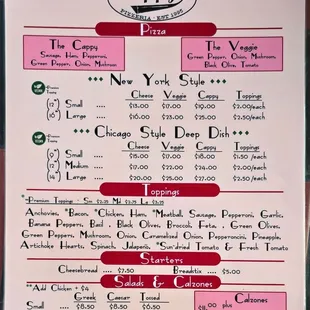 PIZZERIA EST 1995
Pizza
The Cappy
Sausage, Ham, Pepperoni,
Green Pepper, Onion, Mushroom
The Veggie
Green Pepper, Onion, Mushroom
Black Olive, Tomato
New York Style
Cheese Veggie Cappy Toppings
(12") Small .... $13.00 $17.00 $19.00 $2.00/each
(16") Large .... $16.00 $23.00 $26.00 $2.50/each
Chicago Style Deep Dish
Cheese Veggie Cappy Toppings
Small .... $15.00 $17.00 $18.00 $1.50/each
(12") Medium .... $17.00 $22.00 $24.00 $2.00/each
(14") Large .... $20.00 $25.00 $27.00 $2.50/each
Toppings
*Premium Toppings - Sm $2.25 Md $2.75 Lg $3.25
Anchovies, *Bacon, *Chicken, Ham, *Meatball, Sausage, Pepperoni, Garlic,
Banana Peppers, Basil, Black Olives, Broccoli, Feta, Green Olives,
Green Pepper, Mushroom, Onion, Caramelized Onion, Pepperoncini, Pineapple,
Artichoke Hearts, Spinach, Jalapeño, *Sun'dried Tomato & Fresh Tomato
Starters
Cheesebread .... $7.50 Breadstix .... $5.00
Salads & Calzones
**Add Chicken + $4
Greek Caesar Tossed
Small .... $8.50 $8.50 $6.50
plus
Calzones